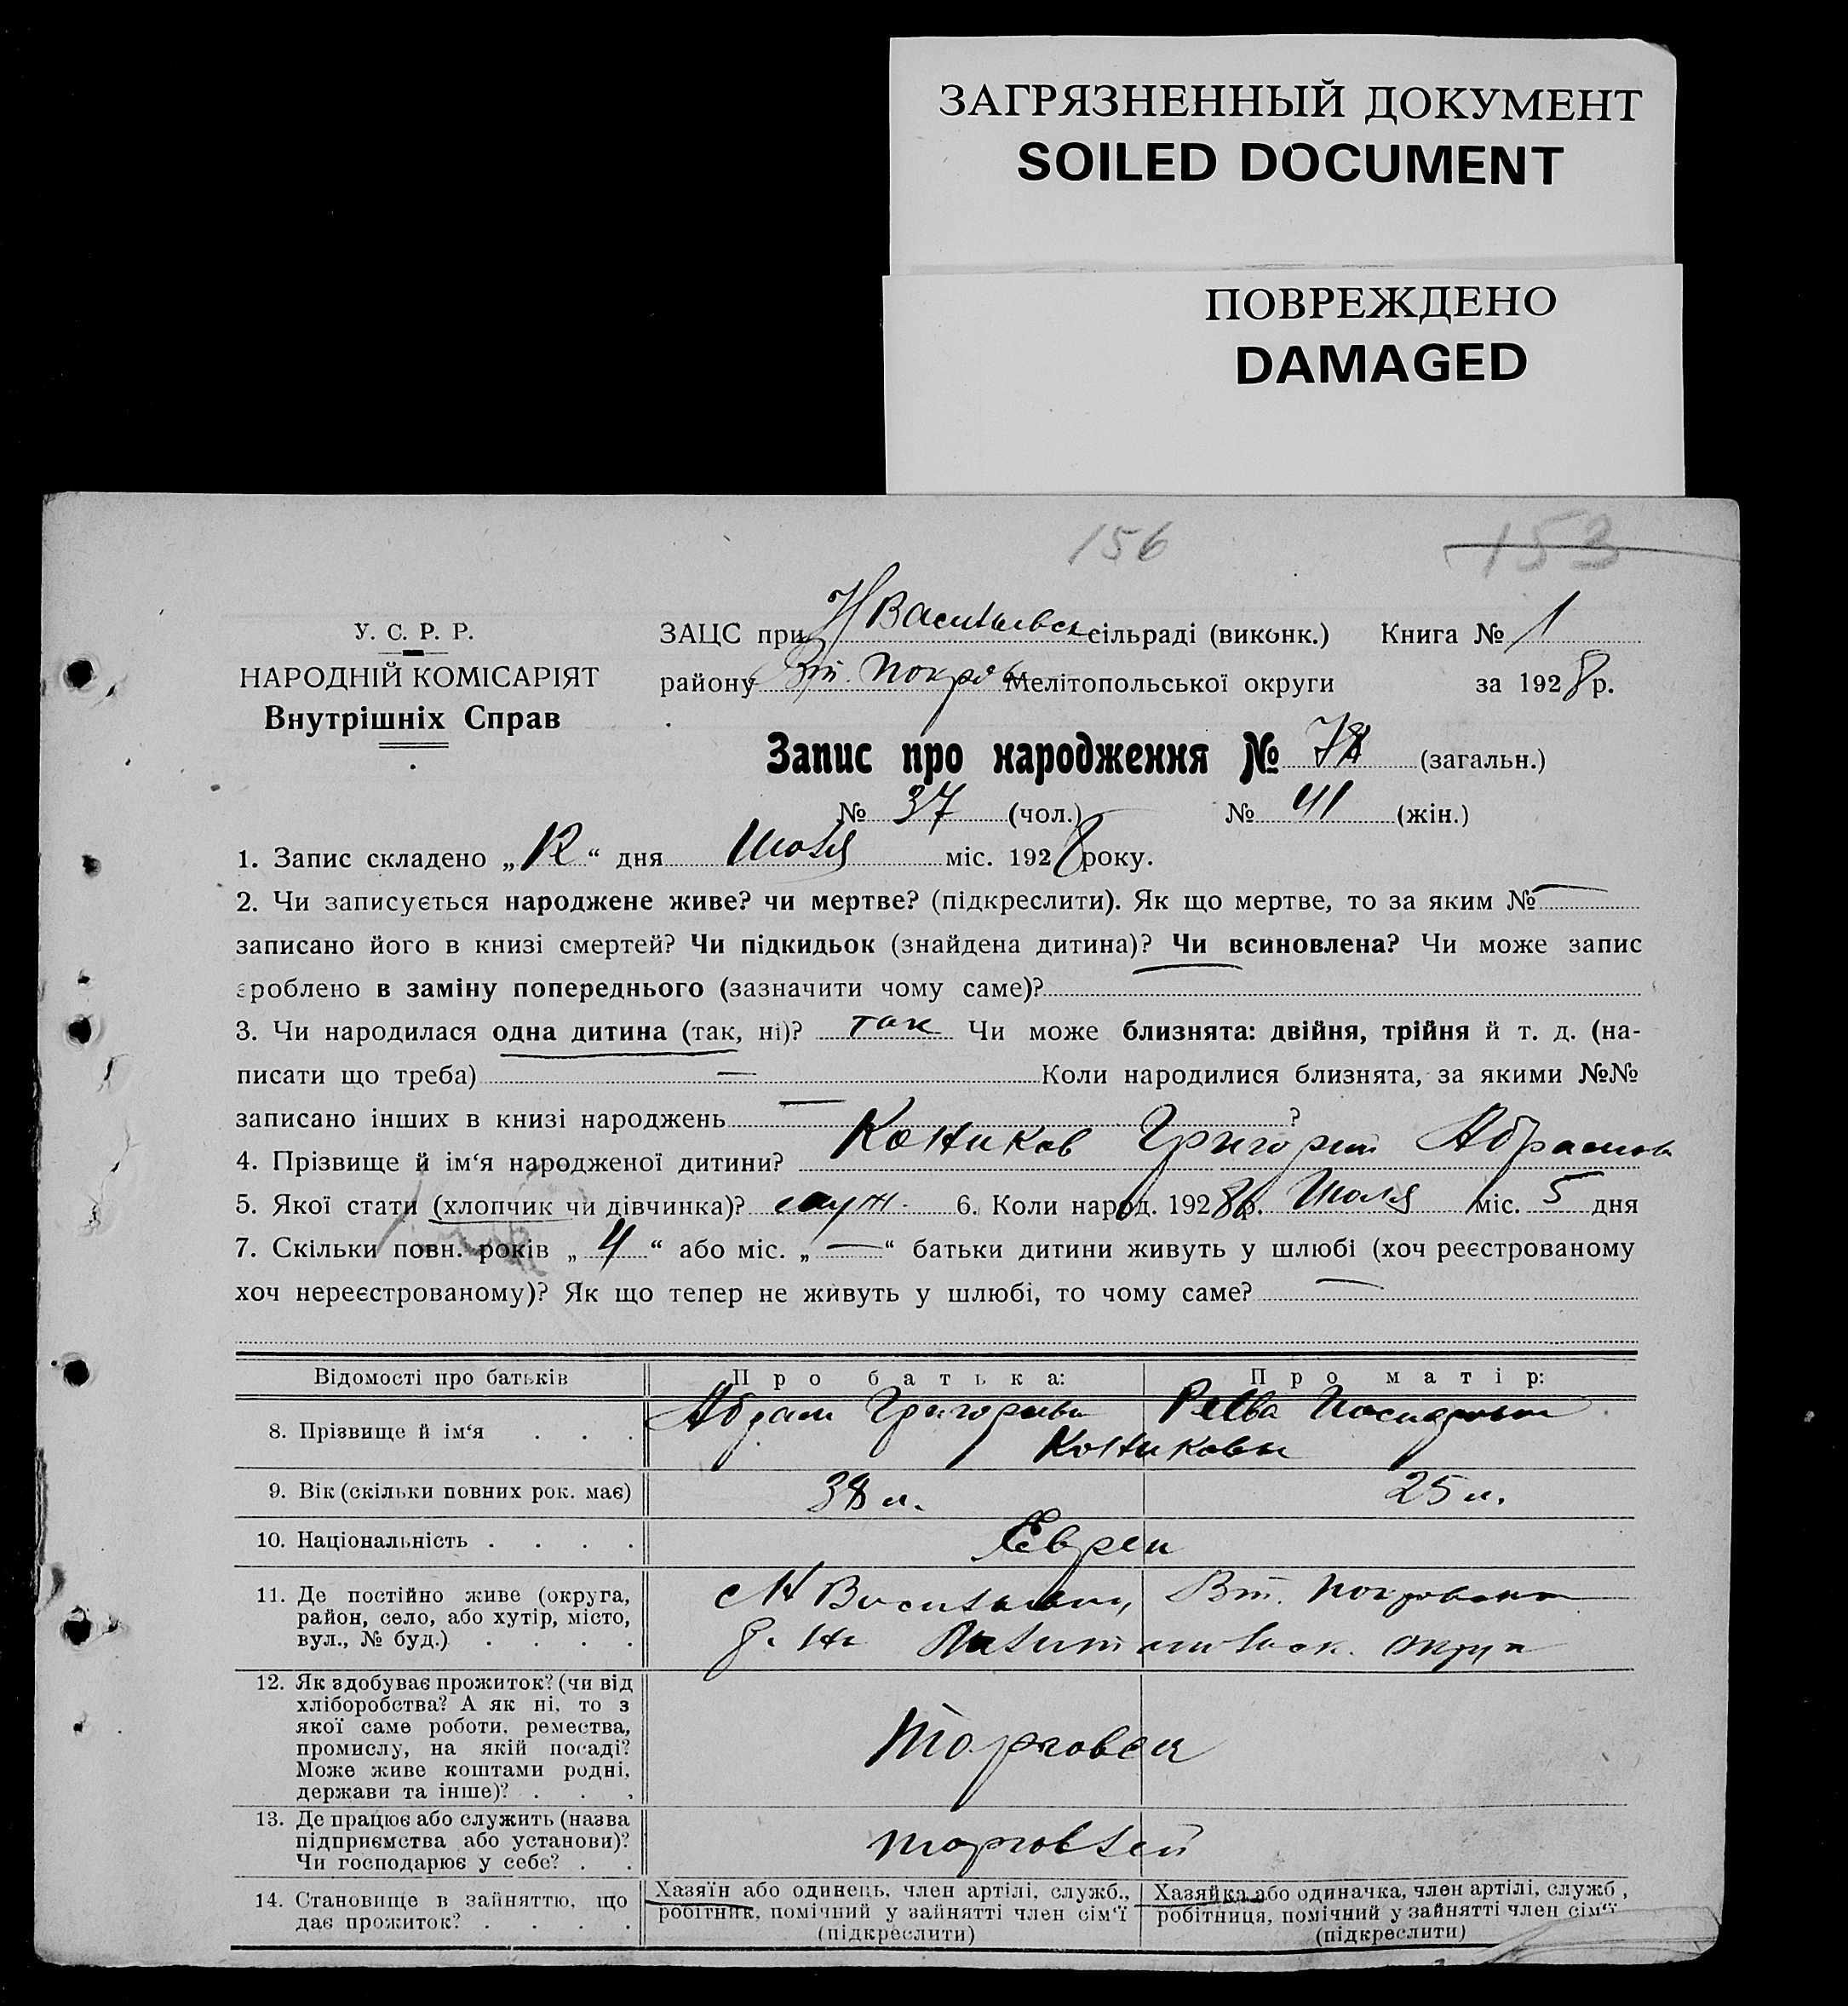 ЗАГРЯЗНЕННЫЙ ДОКУМЕНТ
SOILED DOCUMENT
ПОВРЕЖДЕНО
DAMAGED
156 153
У. С. Р. Р.
НАРОДНІЙ КОМІСАРІЯТ
Внутрішніх Справ
ЗАЦС при Н Васильевск сільраді (виконк.) Книга № 1
району Вт. Покров Мелітопольської округи за 1928 р.
Запис про народження № 78 (загальн.)
№ 37 (чол.) № 41 (жін.)
1. Запис складено „ 12 “ дня Июля міс. 1928 року.
2. Чи записується народжене живе? чи мертве? (підкреслити). Як що мертве, то за яким № —
записано його в книзі смертей? Чи підкидьок (знайдена дитина)? Чи всиновлена? Чи може запис
зроблено в заміну попереднього (зазначити чому саме)?
3. Чи народилася одна дитина (так, ні)? так Чи може близнята: двійня, трійня й т. д. (на-
писати що треба) — Коли народилися близнята, за якими №№
записано інших в книзі народжень — ?
4. Прізвище й ім‘я народженої дитини? Коников Григорий Абрамов
5. Якої стати (хлопчик чи дівчинка)? муж. 6. Коли народ. 1928 р. Июля міс. 5 дня
7. Скільки повн. років „ 4 “ або міс. „ — “ батьки дитини живуть у шлюбі (хоч реєстрованому
хоч нереєстрованому)? Як що тепер не живуть у шлюбі, то чому саме? —
Відомості про батьків Про батька: Про матір:
8. Прізвище й ім‘я . . . Абрам Григорьев
Кониковы
9. Вік (скільки повних рок. має) 38 л. 25 л.
10. Національність . . . . Евреи
11. Де постійно живе (округа,
район, село, або хутір, місто,
вул., № буд.) . . . .
с Н Васильевки, Вт. Покровского
р. на Мелитопольск. округа
12. Як здобуває прожиток? (чи від
хліборобства? А як ні, то з
якої саме роботи, ремества,
промислу, на якій посаді?
Може живе коштами родні,
держави та інше)? . . .
Торговля
13. Де працює або служить (назва
підприємства або установи)?
Чи господарює у себе? . .
торговлей
14. Становище в зайняттю, що
дає прожиток? . . . .
Хазяїн або одинець, член артілі, служб.,
робітник, помічний у зайнятті член сім‘ї
(підкреслити)
Хазяйка або одиначка, член артілі, служб.,
робітниця, помічний у зайнятті член сім‘ї
(підкреслити)